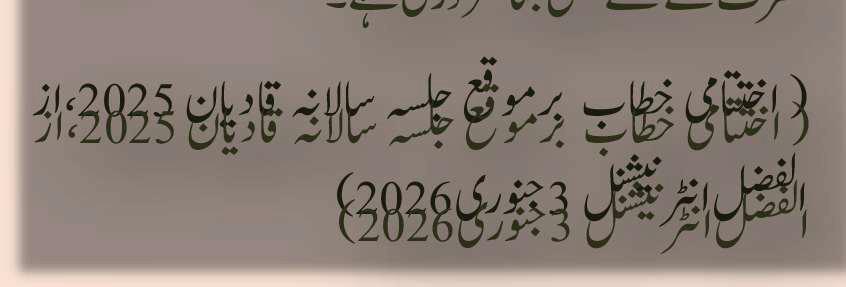 (اختتامی خطاب برموقع جلسہ سالانہ قادیان 2025،از
الفضل انٹرنیشنل 3جنوری2026)